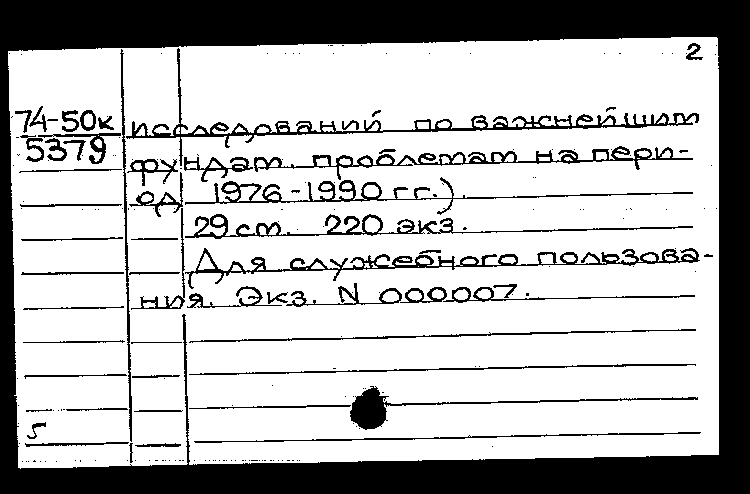 2
74-50к исследований по важнейшим
5379 фундам. проблемам на пери-
од 1976-1990 гг.).
29 ст. 220 экз.
(Для служебного пользова-
ния. Экз. N 000007.
5